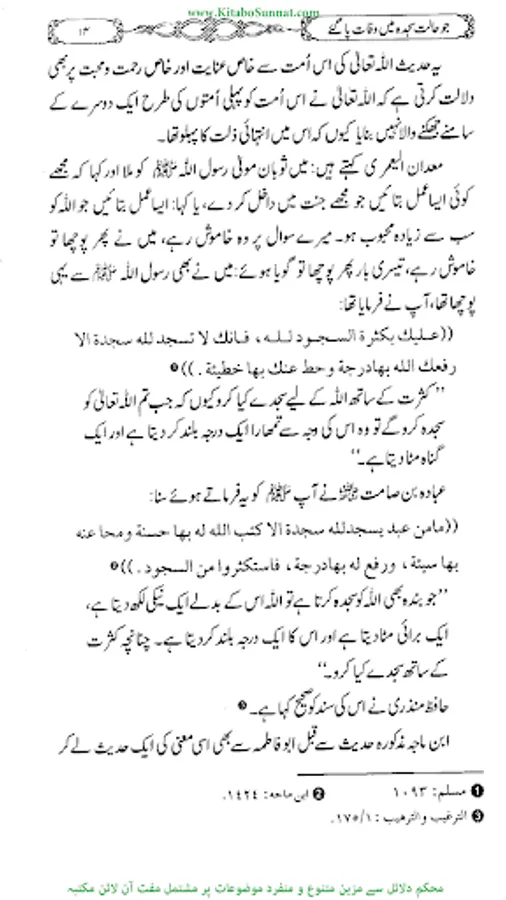 www.KitaboSunnat.com
جو حالت سجدہ میں وفات پا گئے
۱۳
یہ حدیث اللہ تعالیٰ کی اس اُمت سے خاص عنایت اور خاص رحمت و محبت پر بھی
دلالت کرتی ہے کہ اللہ تعالیٰ نے اس اُمت کو پہلی اُمتوں کی طرح ایک دوسرے کے
سامنے جھکنے والا نہیں بنایا کیوں کہ اس میں انتہائی ذلت کا پہلو تھا۔
معدان الیعمری کہتے ہیں: میں ثوبان مولیٰ رسول اللہ ﷺ کو ملا اور کہا کہ مجھے
کوئی ایسا عمل بتائیں جو مجھے جنت میں داخل کر دے، یا کہا: ایسا عمل بتائیں جو اللہ کو
سب سے زیادہ محبوب ہو۔ میرے سوال پر وہ خاموش رہے، میں نے پھر پوچھا تو
خاموش رہے، تیسری بار پھر پوچھا تو گویا ہوئے: میں نے بھی رسول اللہ ﷺ سے یہی
پوچھا تھا، آپ نے فرمایا تھا:
((عليك بكثرة السجود لله، فانك لا تسجد لله سجدة الا
رفعك الله بها درجة وحط عنك بها خطيئة.)) ❶
’’کثرت کے ساتھ اللہ کے لیے سجدے کیا کرو کیوں کہ جب تم اللہ تعالیٰ کو
سجدہ کرو گے تو وہ اس کی وجہ سے تمھارا ایک درجہ بلند کر دیتا ہے اور ایک
گناہ مٹا دیتا ہے۔‘‘
عبادہ بن صامت رضی اللہ عنہ نے آپ ﷺ کو یہ فرماتے ہوئے سنا:
((مامن عبد يسجد لله سجدة الا كتب الله له بها حسنة ومحا عنه
بها سيئة، ورفع له بها درجة، فاستكثروا من السجود.)) ❷
’’جو بندہ بھی اللہ کو سجدہ کرتا ہے تو اللہ اس کے بدلے ایک نیکی لکھ دیتا ہے،
ایک برائی مٹا دیتا ہے اور اس کا ایک درجہ بلند کر دیتا ہے۔ چنانچہ کثرت
کے ساتھ سجدے کیا کرو۔‘‘
حافظ منذری نے اس کی سند کو صحیح کہا ہے۔ ❸
ابن ماجہ مذکورہ حدیث سے قبل ابو فاطمہ سے بھی اسی معنی کی ایک حدیث لے کر
❶ مسلم: ۱۰۹۳ ❷ ابن ماجه: ۱۴۲۴.
❸ الترغيب والترهيب: ۱/۱۷۵.
محکم دلائل سے مزین متنوع و منفرد موضوعات پر مشتمل مفت آن لائن مکتبہ